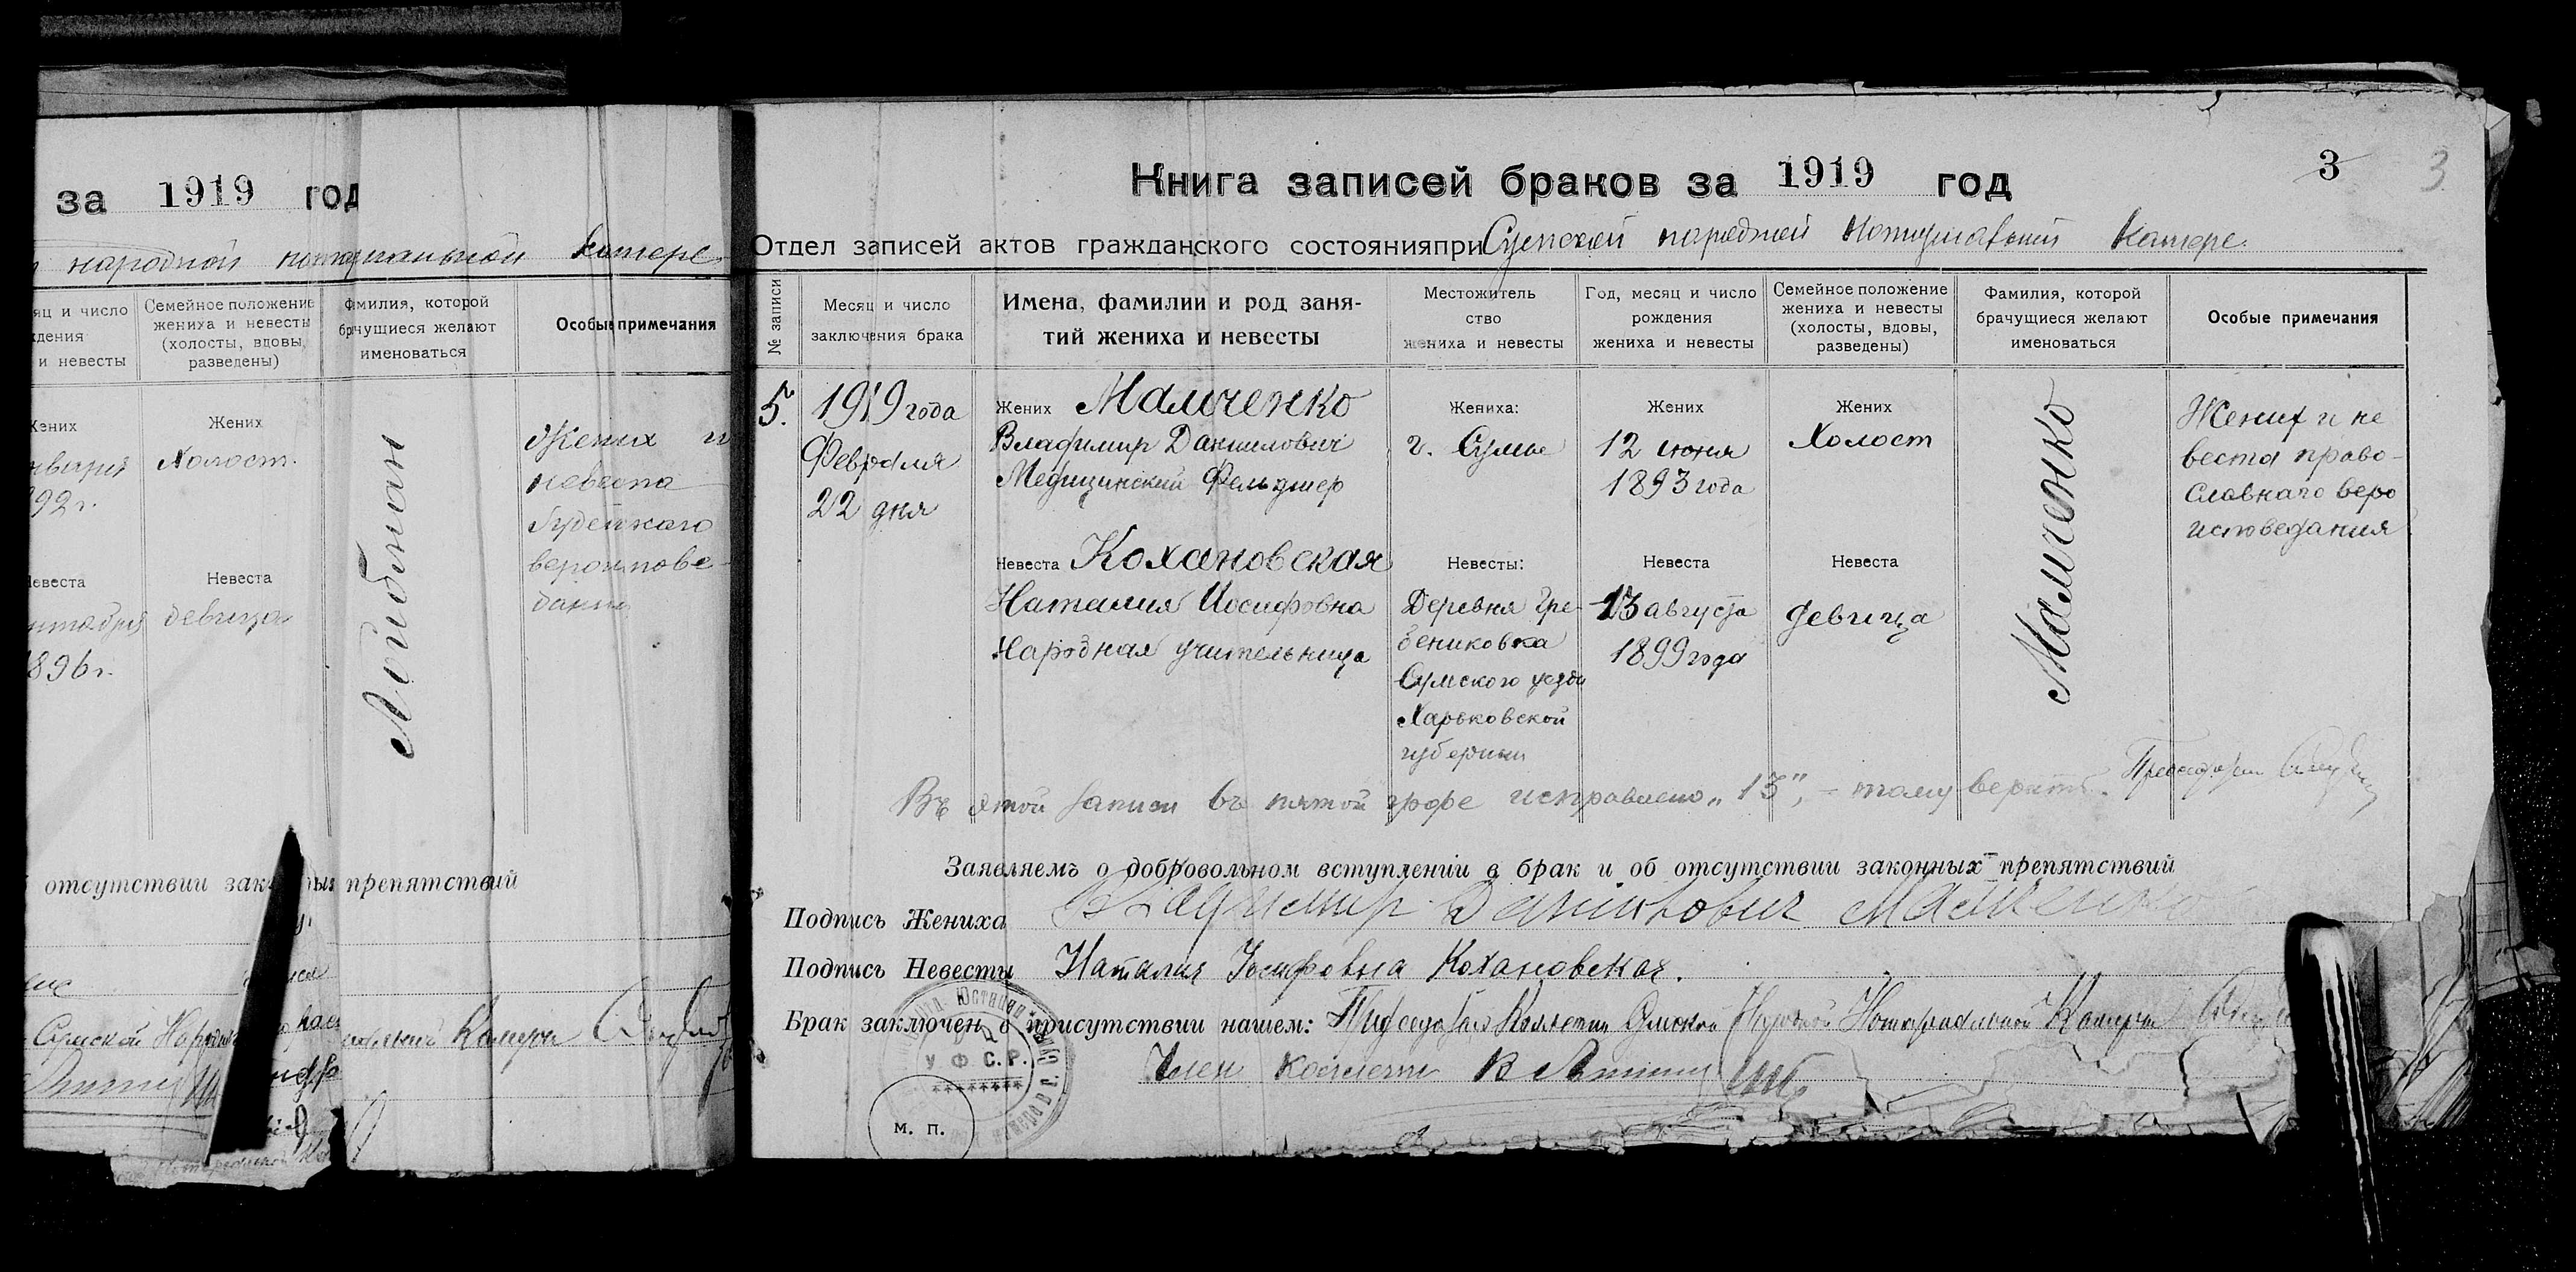 за 1919 год
народной нотариальной камере
яц и число
дения
и невесты
Семейное положение
жениха и невесты
(холосты, вдовы,
разведены)
Фамилия, которой
брачущиеся желают
именоваться
Особые примечания
Жених
января
92 г.
Жених
Холост.
Невеста
1896 г.
Невеста
девица
Лойбман
Жених и
невеста
Иудейского
вероиспове-
дания
отсутствии законных препятствий
Сумской
Книга записей браков за 1919 год
3
3
Отдел записей актов гражданского состояния при Сумской народной Нотариальной Камере.
№ записи
Месяц и число
заключения брака
Имена, фамилии и род заня-
тий жениха и невесты
Местожитель
ство
жениха и невесты
Год, месяц и число
рождения
жениха и невесты
Семейное положение
жениха и невесты
(холосты, вдовы,
разведены)
Фамилия, которой
брачущиеся желают
именоваться
Особые примечания
5.
1919 года
Февраля
22 дня
Жених Мамченко
Владимир Даниилович
Медицинский Фельдшер
Невеста Кохановская
Наталия Иосифовна
Народная учительница
Жениха:
г. Сумы
Невесты:
Деревня Гре-
бениковка
Сумского уезда
Харьковской
губернии
Жених
12 июня
1893 года
Невеста
13 августа
1899 года
Жених
Холост
Невеста
девица
Мамченко
Жених и не
веста право-
славнаго веро
исповедания
Въ этой записи въ пятой графе исправлено "13", – тому верить. Председатель
Заявляемъ о добровольном вступленіи в брак и об отсутствии законных препятствий
Подпись Жениха Владимир Данилович Мамченко
Подпись Невесты Наталия Іосифовна Кохановская.
Брак заключен в присутствии нашем: Председатель Коллегии Сумской Народной Нотариальной Камеры
Член коллегии
У Ф С. Р.
м. п.